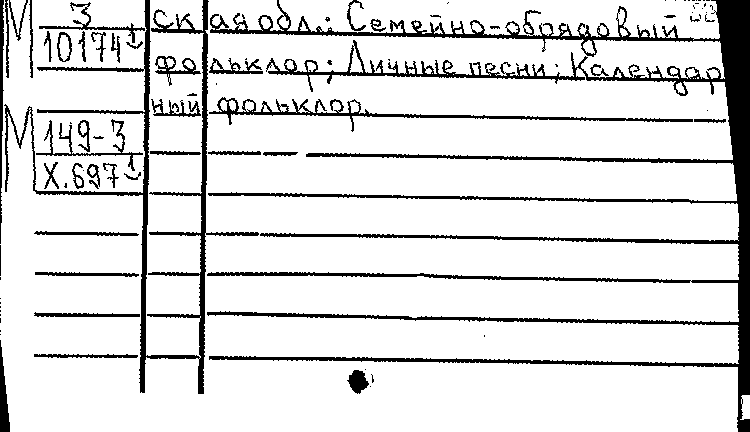 М 3 ская обл.: Семейно-обрядовый
10174
фольклор; Личные песни; Календар
ный фольклор.
М 149-3
Х.697